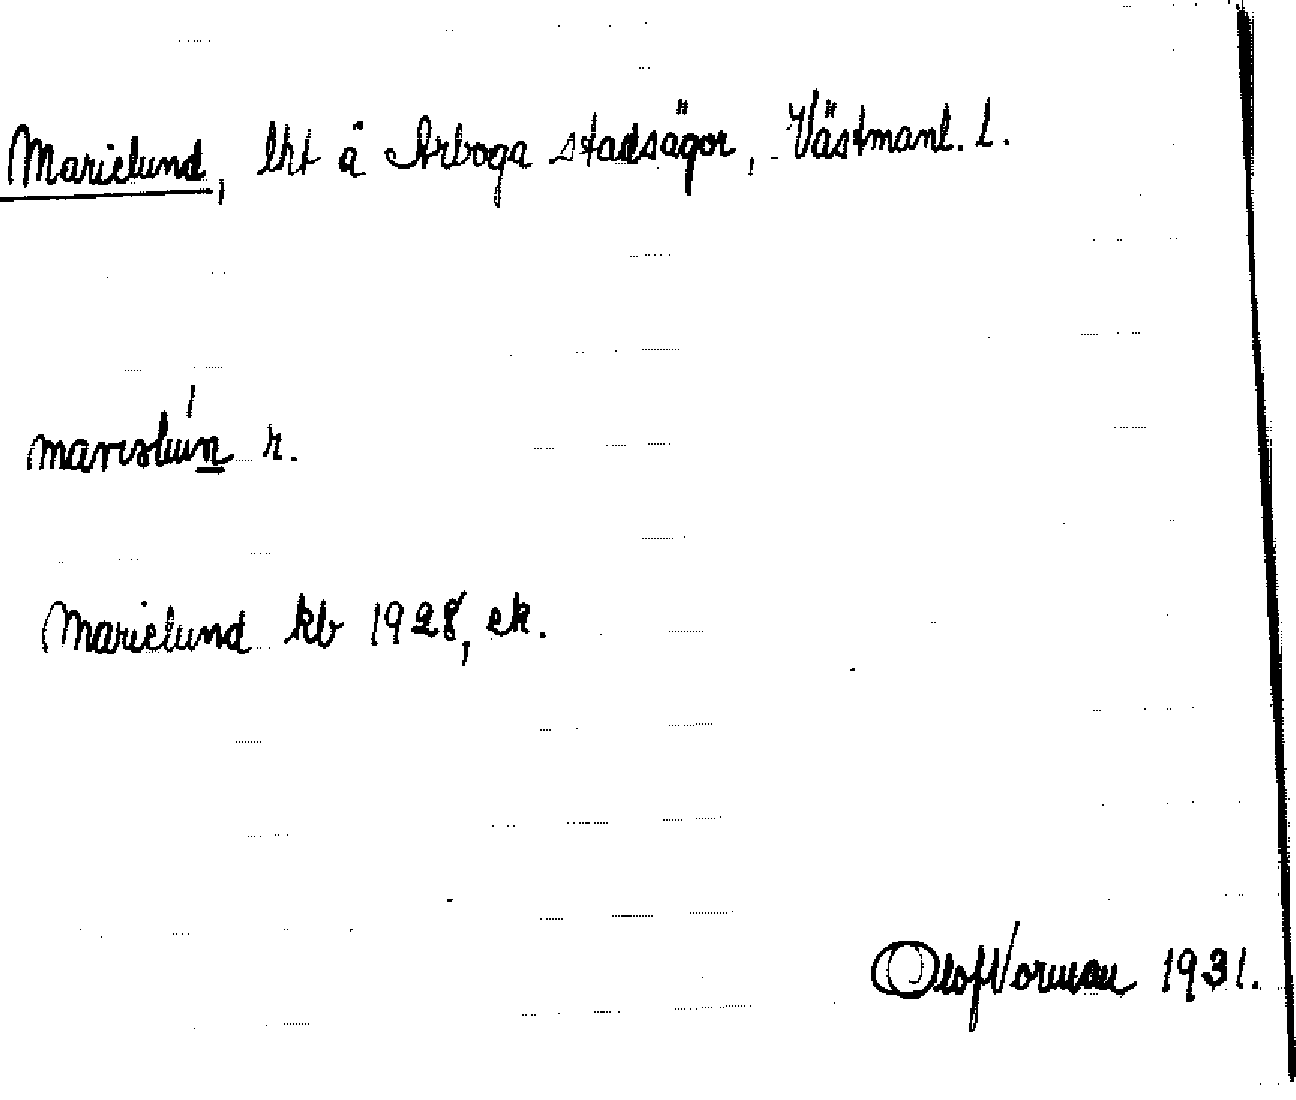 Marielund, lht å Arboga stadsägor, Västmanl. L.
r.
Marielund kb 1928, ek.
Olof Norman 1931.